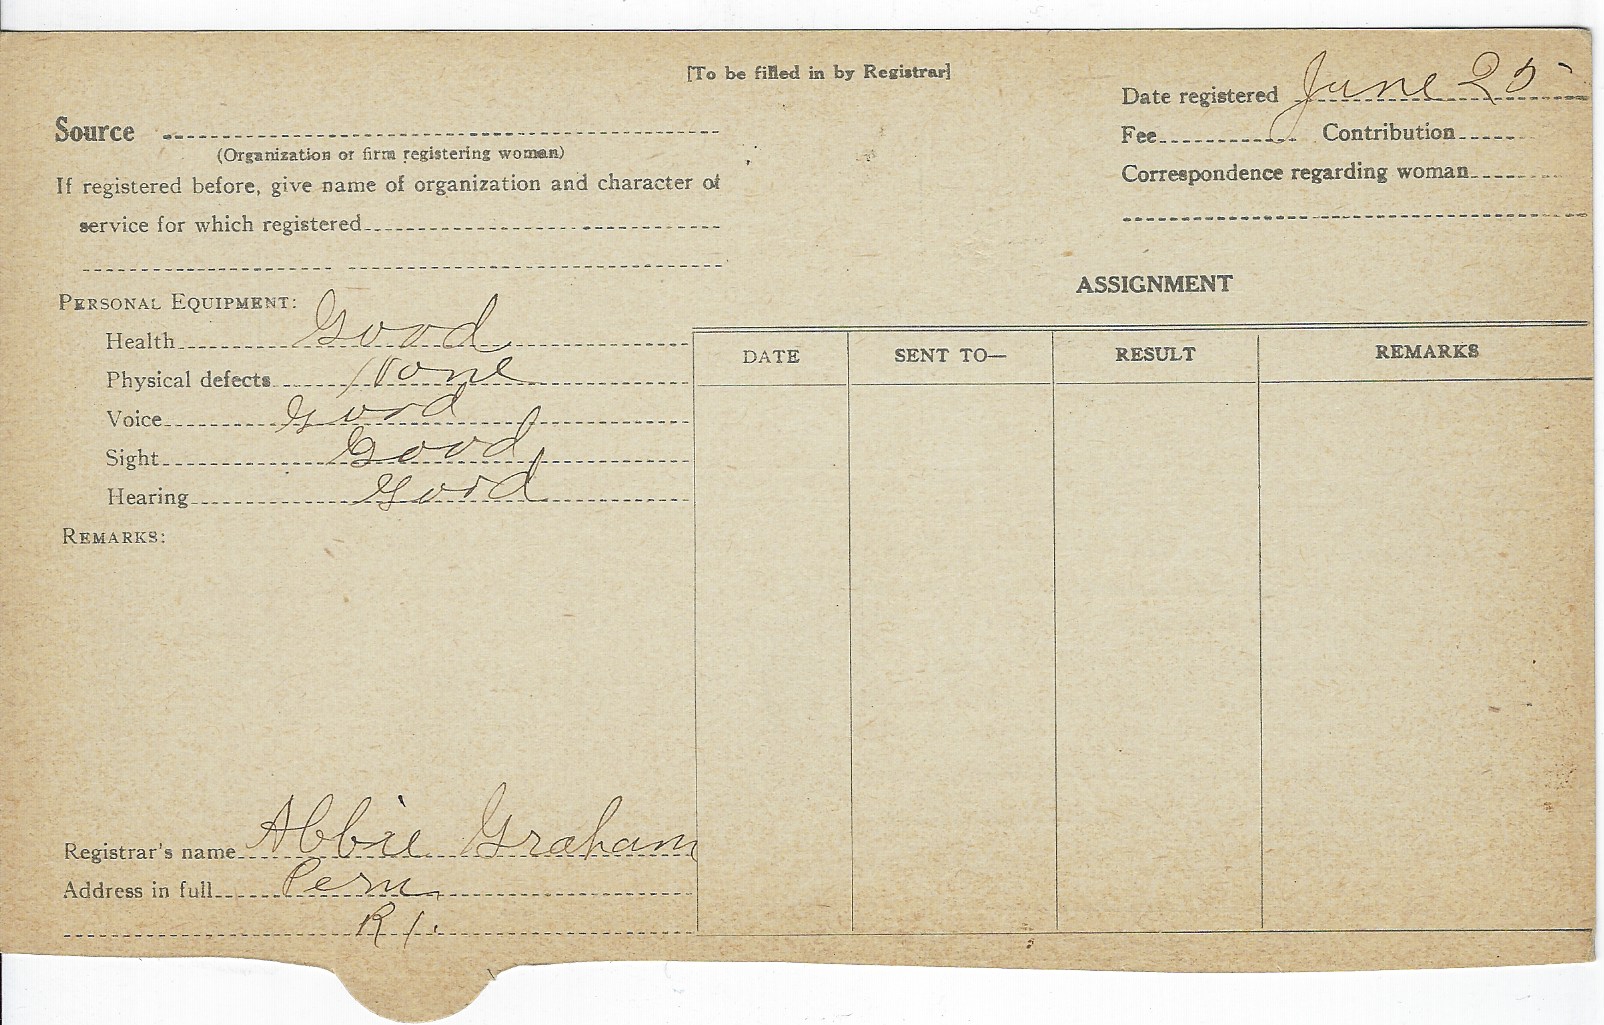 [To be filled in by Registrar]
Date registered June 25
Source
(Organization or firm registering woman)
Fee Contribution
If registered before, give name of organization and character of
service for which registered
Correspondence regarding woman
PERSONAL EQUIPMENT:
Health Good
Physical defects None
Voice Good
Sight Good
Hearing Good
REMARKS:
ASSIGNMENT
DATE SENT TO— RESULT REMARKS
Registrar's name Abbie Graham
Address in full Peru
R 1.